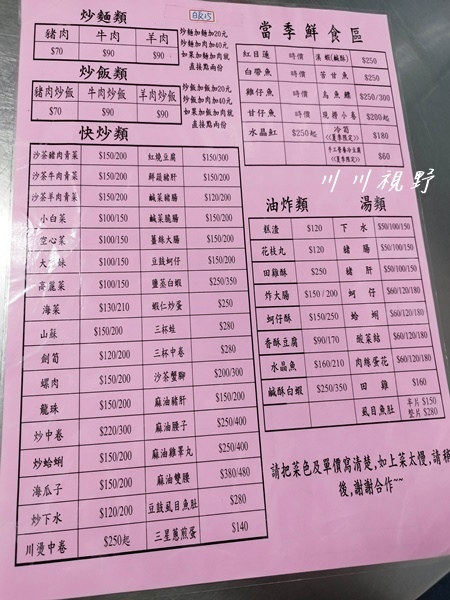 炒麵類
豬肉 牛肉 羊肉
$70 $90 $90
炒麵加麵加20元
炒麵加肉加40元
如果加麵加肉就
直接點兩份
炒飯類
豬肉炒飯 牛肉炒飯 羊肉炒飯
$70 $90 $90
炒飯加飯加20元
炒飯加肉加40元
如果加飯加肉就
直接點兩份
快炒類
沙茶豬肉青菜 $150/200 紅燒豆腐 $150/300
沙茶牛肉青菜 $150/200 鮮蔬豬肝 $150/200
沙茶羊肉青菜 $150/200 鹹菜豬腸 $120/200
小白菜 $100/150 鹹菜脆腸 $150/200
空心菜 $100/150 薑絲大腸 $150/200
大陸妹 $100/150 豆豉蚵仔 $150/200
高麗菜 $100/150 鹽蒸白蝦 $250/350
海菜 $130/210 蝦仁炒蛋 $250
山蘇 $150/200 三杯蛙 $280
劍筍 $120/200 三杯中卷 $280
螺肉 $150/200 沙茶蟹腳 $200/300
龍珠 $150/200 麻油豬肝 $150/200
炒中卷 $220/300 麻油腰子 $250/400
炒蛤蜊 $150/200 麻油雞睪丸 $250/400
海瓜子 $150/200 麻油雙腰 $380/480
炒下水 $120/200 豆豉虱目魚肚 $280
川燙中卷 $250起 三星蔥煎蛋 $140
當季鮮食區
紅目蓮 時價 溪蝦(鹹酥) $250
白帶魚 時價 苦甘魚 $250
雞仔魚 時價 烏魚鰾 $250/300
甘仔魚 時價 現撈小卷 $200起
水晶紅 $250起 冷筍 《夏季限定》 $180
手工薯養冷豆腐 《夏季限定》 $60
川川視野
油炸類 湯類
糕渣 $120 下水 $50/100/150
花枝丸 $120 豬腸 $50/100/150
田雞酥 $250 豬肝 $50/100/150
炸大腸 $150/200 蚵仔 $60/120/180
蚵仔酥 $150/250 蛤蜊 $60/120/180
香酥豆腐 $90/170 酸菜結 $60/120/180
水晶魚 $160/210 肉絲蛋花 $60/120/180
鹹酥白蝦 $250/350 田雞 $160
虱目魚肚 半片$150 整片$280
請把菜色及單價寫清楚,如上菜太慢,請稍
後,謝謝合作~~